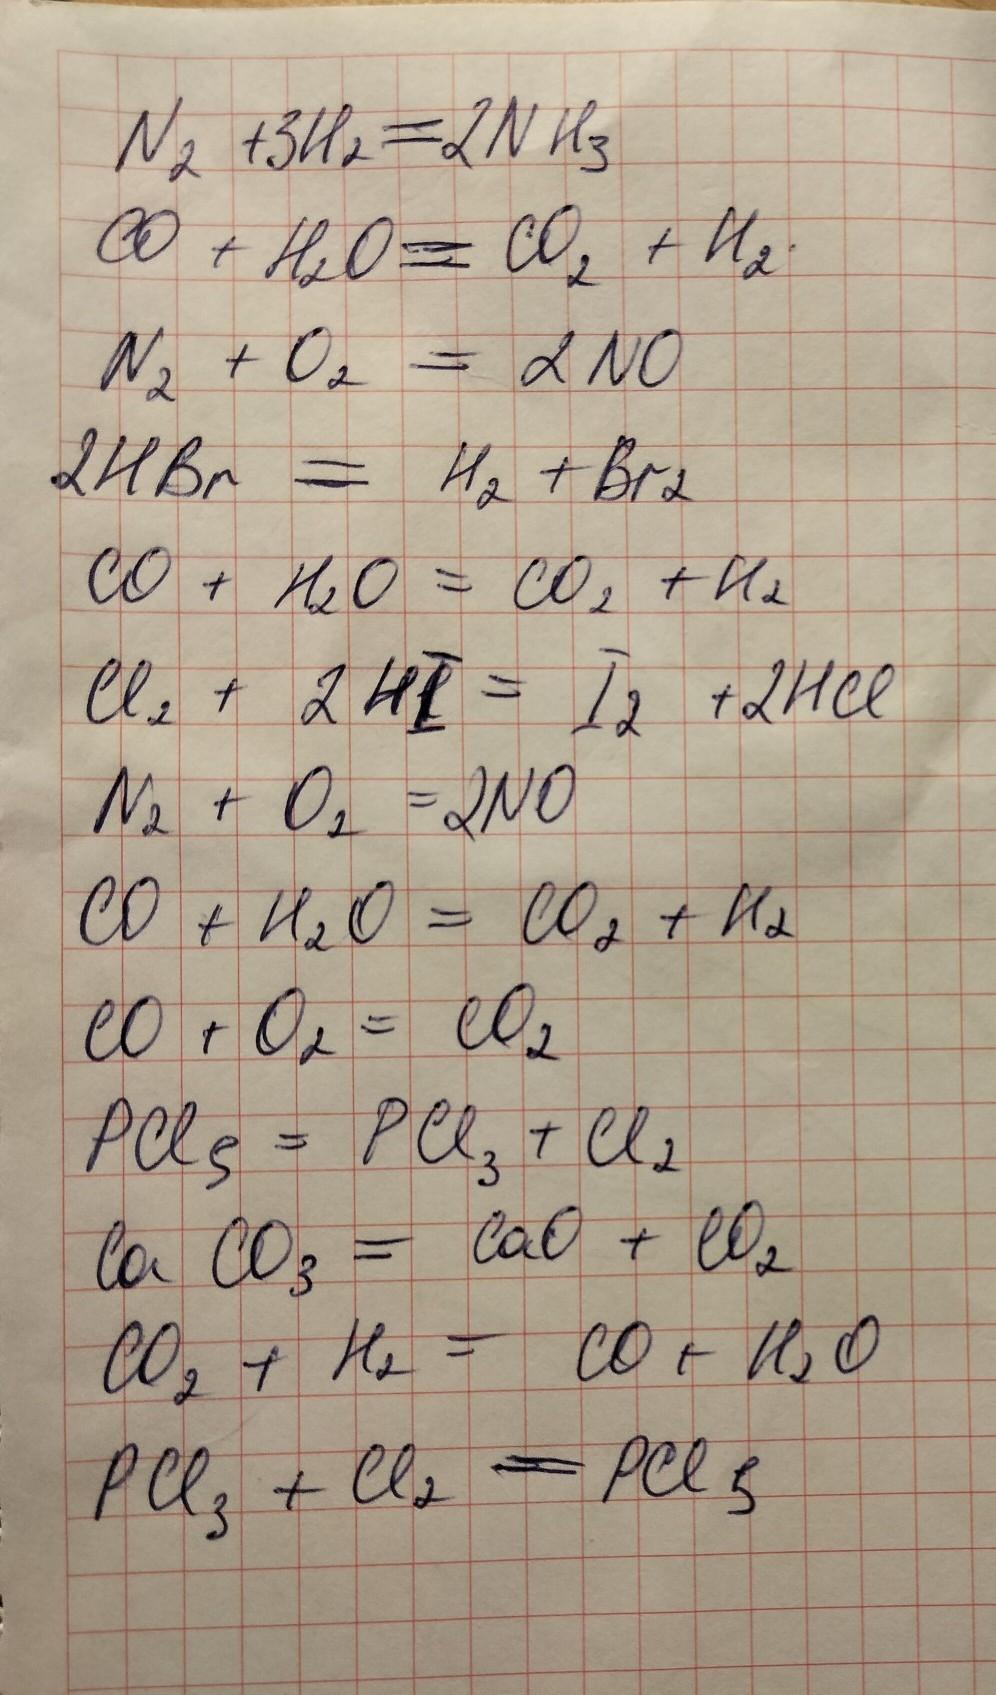 N₂ + 3H₂ = 2NH₃
CO + H₂O = CO₂ + H₂.
N₂ + O₂ = 2NO
2HBr = H₂ + Br₂
CO + H₂O = CO₂ + H₂
Cl₂ + 2HI = I₂ + 2HCl
N₂ + O₂ = 2NO
CO + H₂O = CO₂ + H₂
CO + O₂ = CO₂
PCl₅ = PCl₃ + Cl₂
CaCO₃ = CaO + CO₂
CO₂ + H₂ = CO + H₂O
PCl₃ + Cl₂ = PCl₅